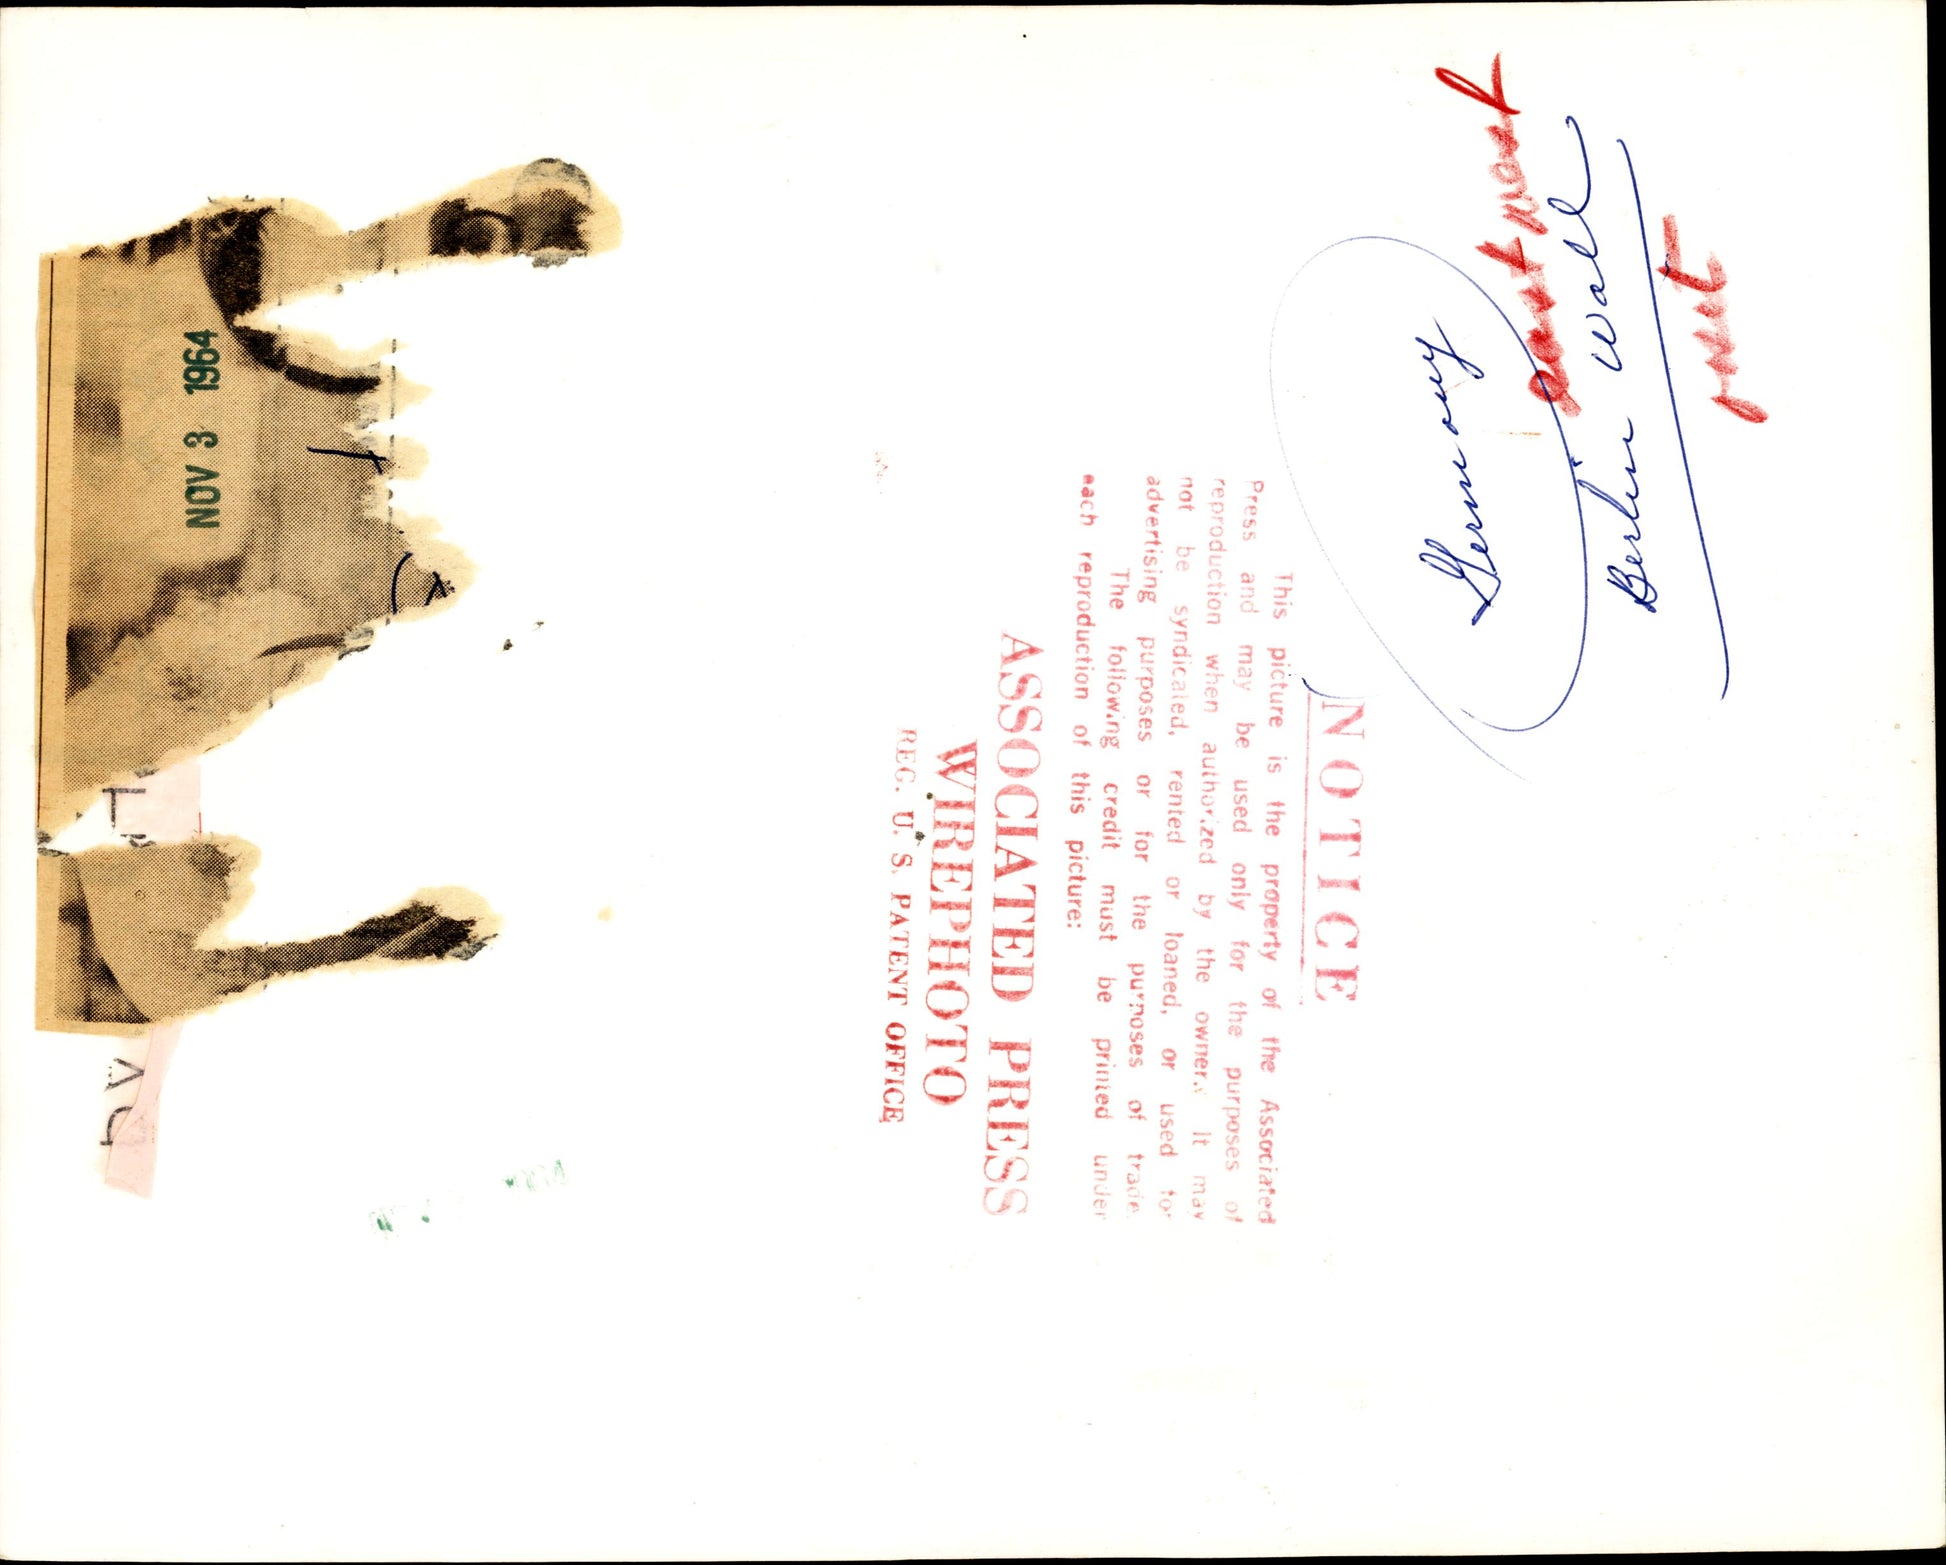 Germany
Berlin Wall
NOTICE
This picture is the property of the Associated
Press and may be used only for the purposes of
reproduction when authorized by the owner. It may
not be syndicated, rented or loaned, or used for
advertising purposes or for the purposes of trade.
The following credit must be printed under
each reproduction of this picture:
ASSOCIATED PRESS
WIREPHOTO
REG. U. S. PATENT OFFICE
NOV 3 1964